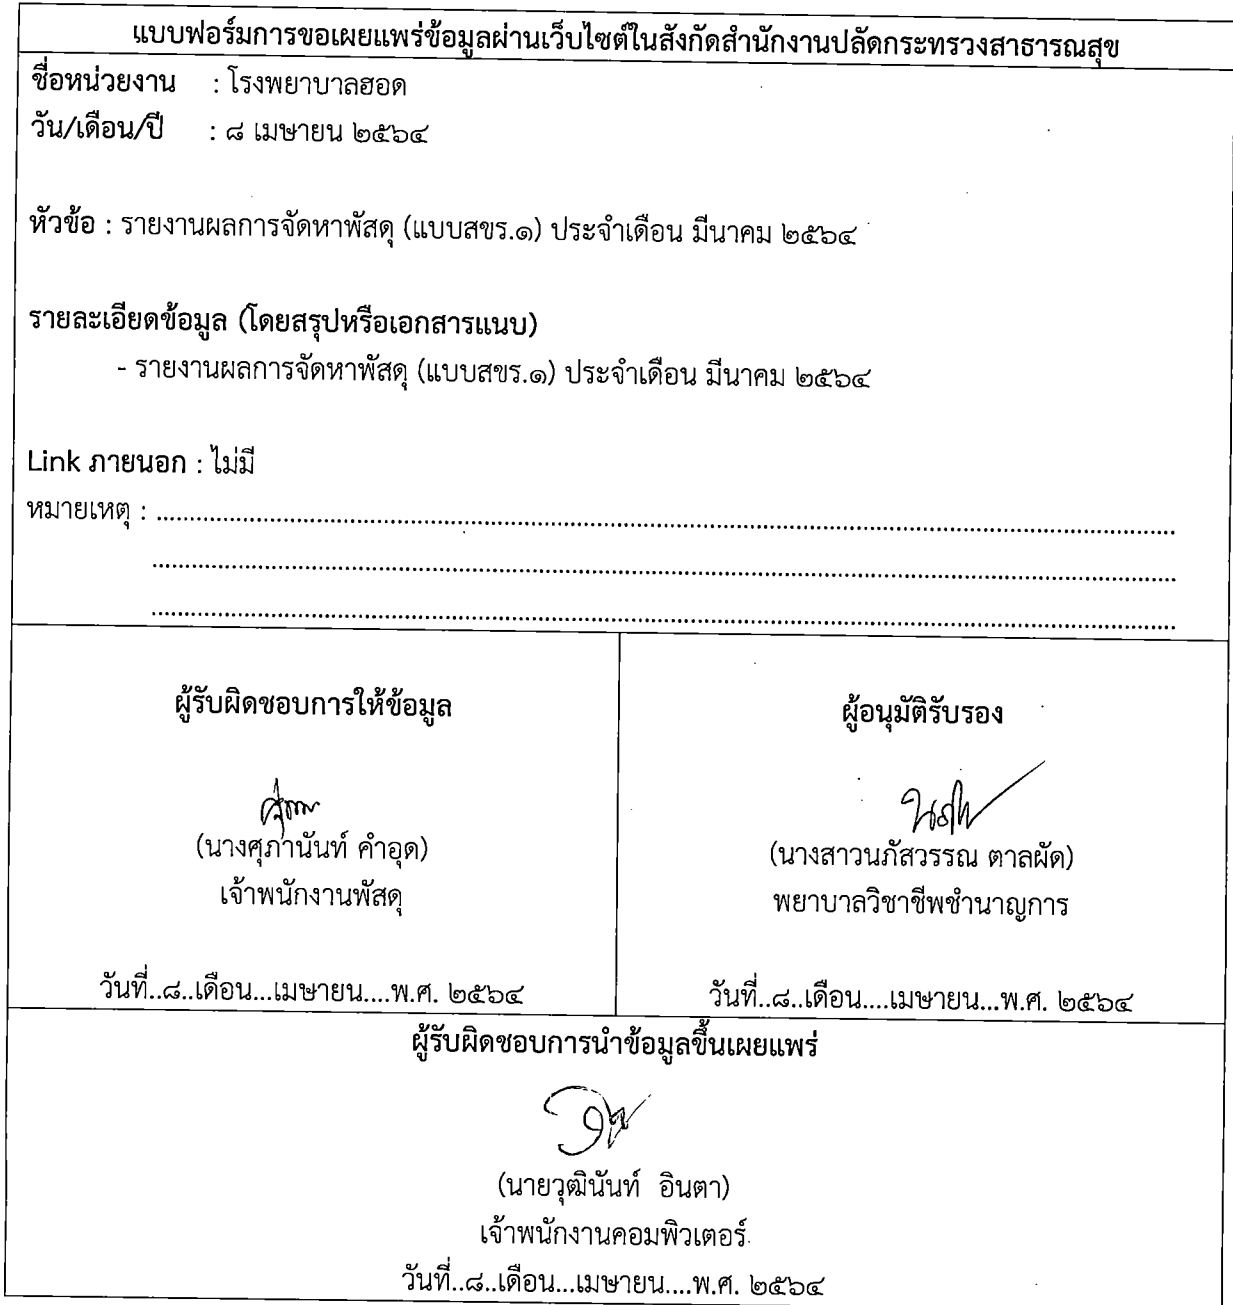 แบบฟอร์มการขอเผยแพร่ข้อมูลผ่านเว็บไซต์ในสังกัดสำนักงานปลัดกระทรวงสาธารณสุข
ชื่อหน่วยงาน : โรงพยาบาลฮอด
วัน/เดือน/ปี : ๘ เมษายน ๒๕๖๔
หัวข้อ : รายงานผลการจัดหาพัสดุ (แบบสขร.๑) ประจำเดือน มีนาคม ๒๕๖๔
รายละเอียดข้อมูล (โดยสรุปหรือเอกสารแนบ)
- รายงานผลการจัดหาพัสดุ (แบบสขร.๑) ประจำเดือน มีนาคม ๒๕๖๔
Link ภายนอก : ไม่มี
หมายเหตุ : ........................................................................
........................................................................
........................................................................
ผู้รับผิดชอบการให้ข้อมูล
(นางศุภานันท์ คำอุด)
เจ้าพนักงานพัสดุ
วันที่..๘..เดือน...เมษายน....พ.ศ. ๒๕๖๔
ผู้อนุมัติรับรอง
(นางสาวนภัสวรรณ ตาลผัด)
พยาบาลวิชาชีพชำนาญการ
วันที่..๘..เดือน....เมษายน...พ.ศ. ๒๕๖๔
ผู้รับผิดชอบการนำข้อมูลขึ้นเผยแพร่
(นายวุฒินันท์ อินตา)
เจ้าพนักงานคอมพิวเตอร์
วันที่..๘..เดือน...เมษายน....พ.ศ. ๒๕๖๔